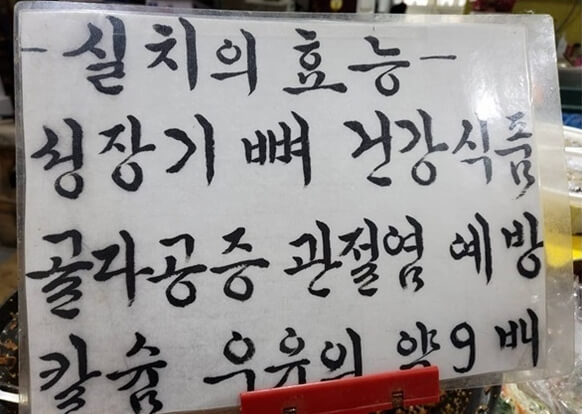 -실치의 효능-
성장기 뼈 건강식품
골다공증 관절염 예방
칼슘 우유의 약9배